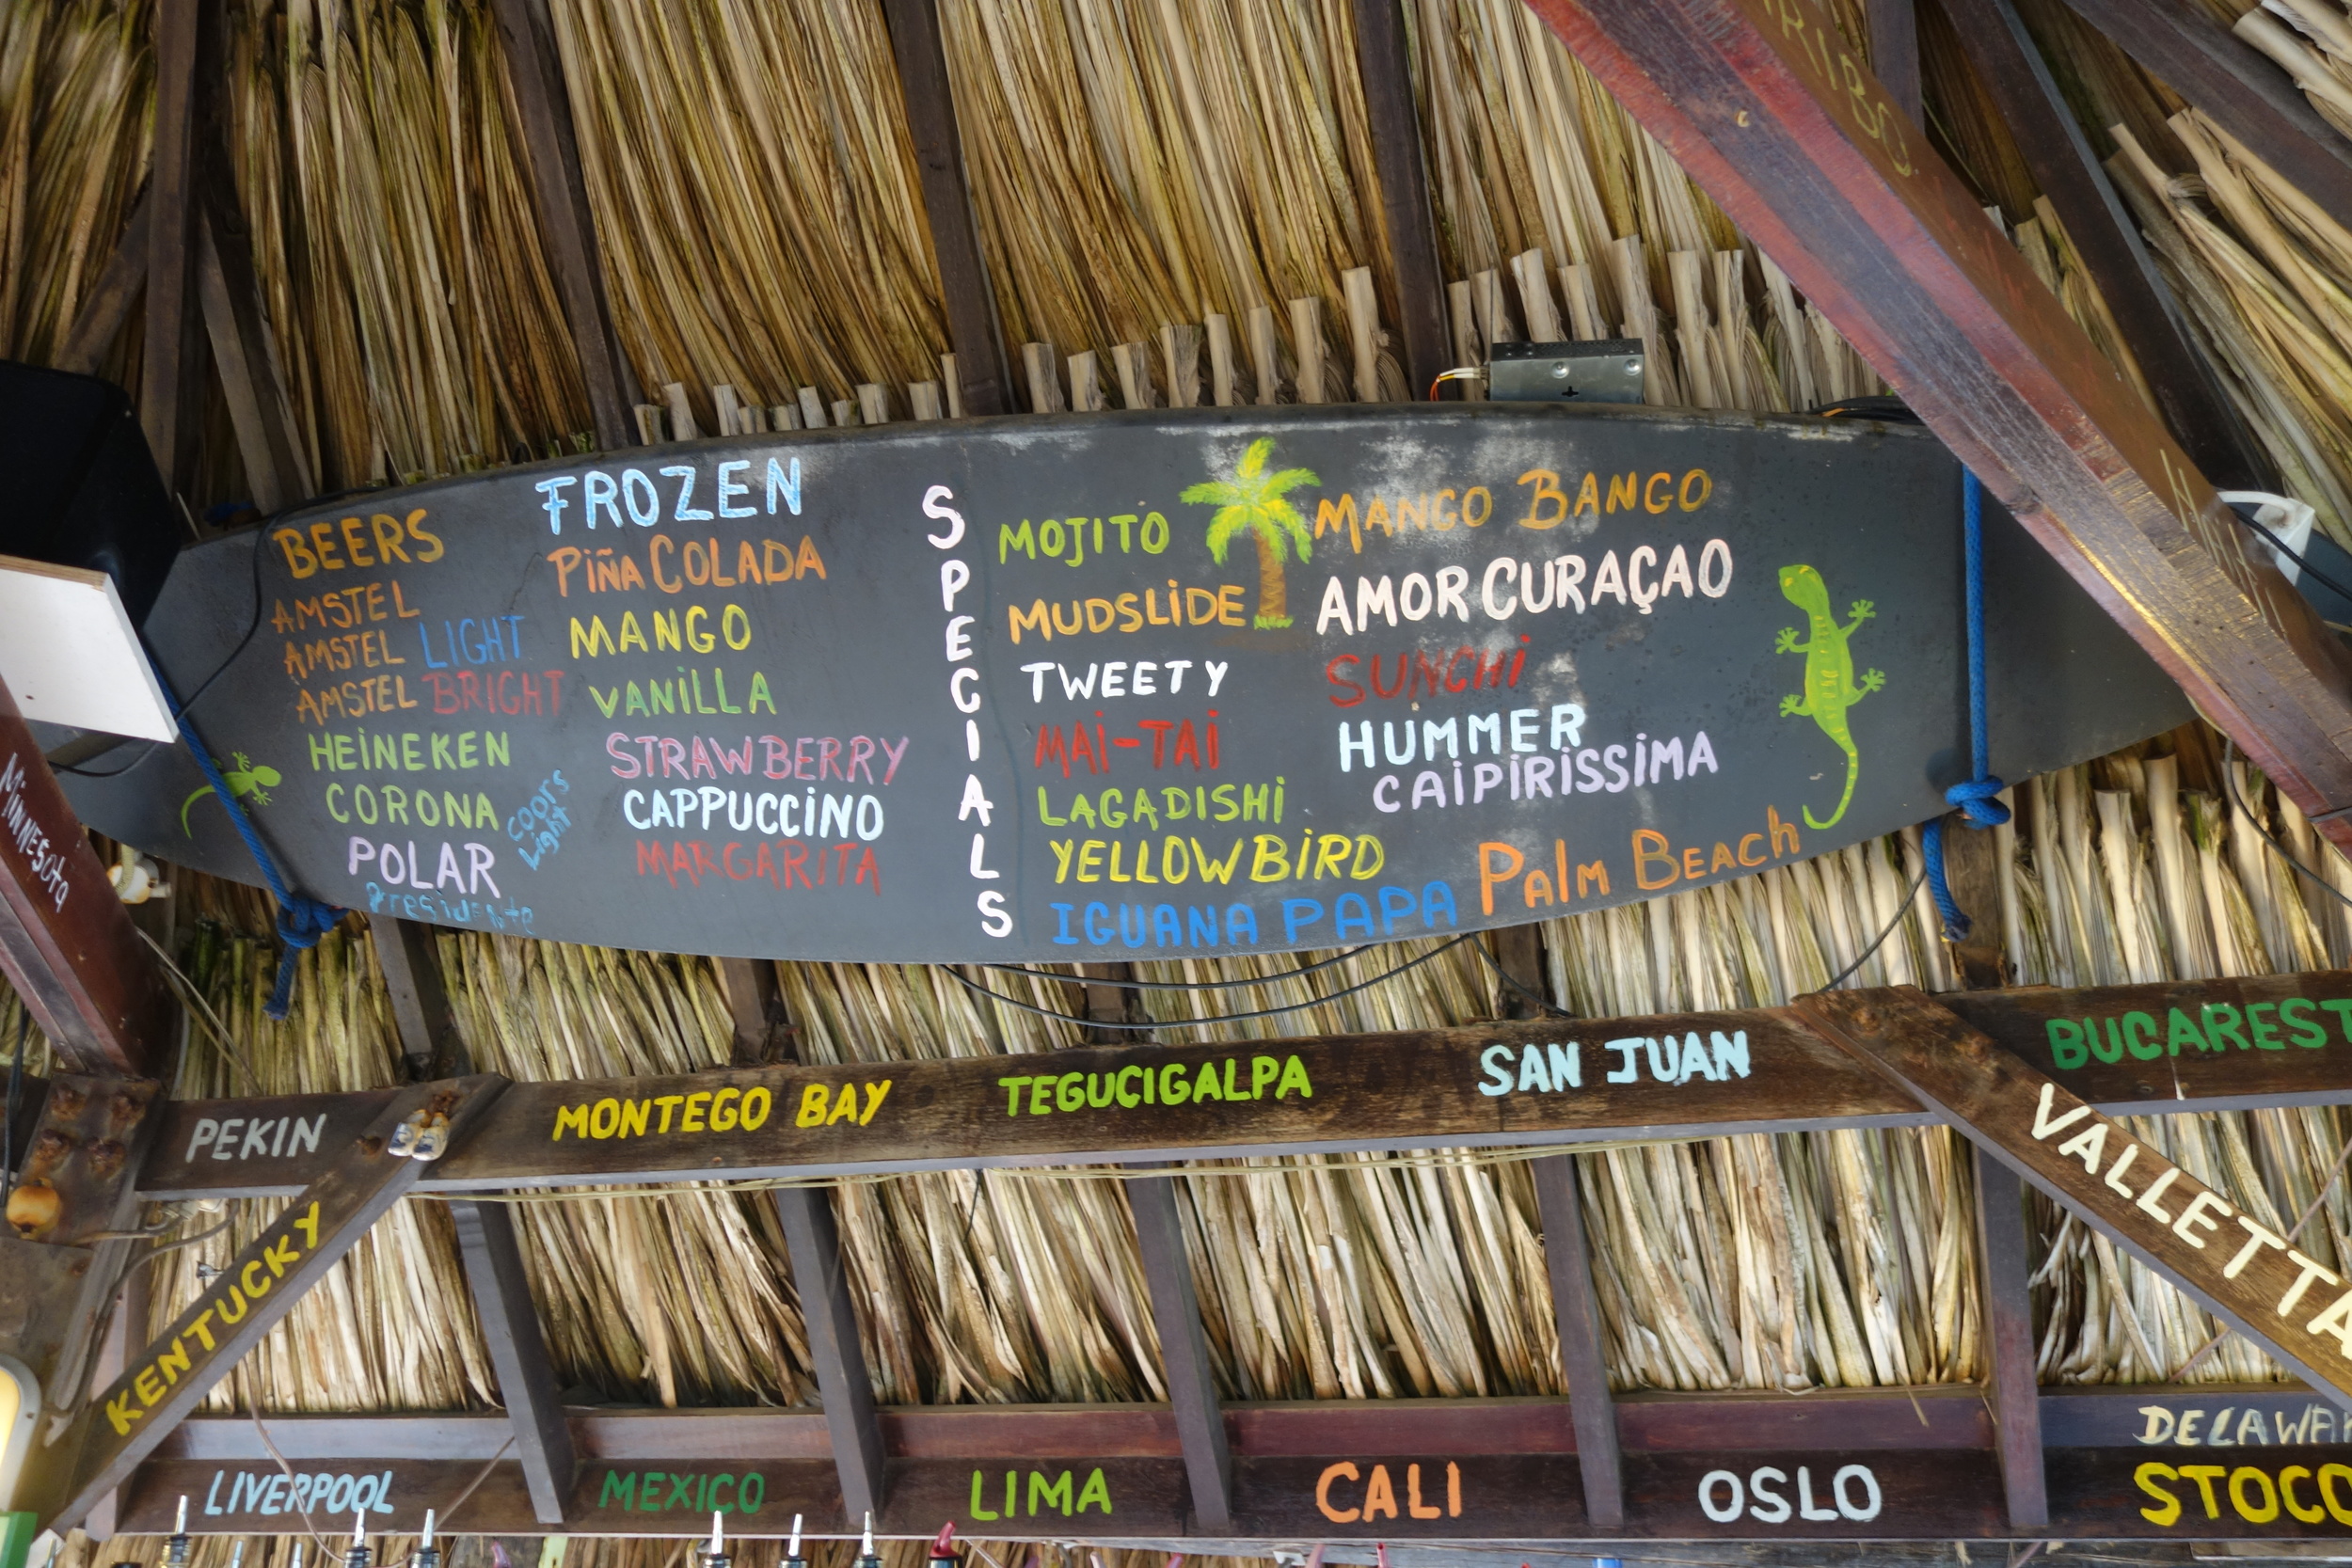 BEERS
AMSTEL
AMSTEL LIGHT
AMSTEL BRIGHT
HEINEKEN
CORONA
COORS
Light
POLAR
Presidente
FROZEN
PIÑA COLADA
MANGO
VANILLA
STRAWBERRY
CAPPUCCINO
MARGARITA
SPECIALS
MOJITO
MUDSLIDE
TWEETY
MAI-TAI
LAGADISHI
YELLOWBIRD
IGUANA PAPA
MANGO BANGO
AMOR CURAÇAO
SUNCHI
HUMMER
CAIPIRISSIMA
PALM BEACH
RIBO
MINNESOTA
PEKIN
MONTEGO BAY
TEGUCIGALPA
SAN JUAN
BUCAREST
KENTUCKY
VALLETTA
DELAWA
LIVERPOOL
MEXICO
LIMA
CALI
OSLO
STOCO